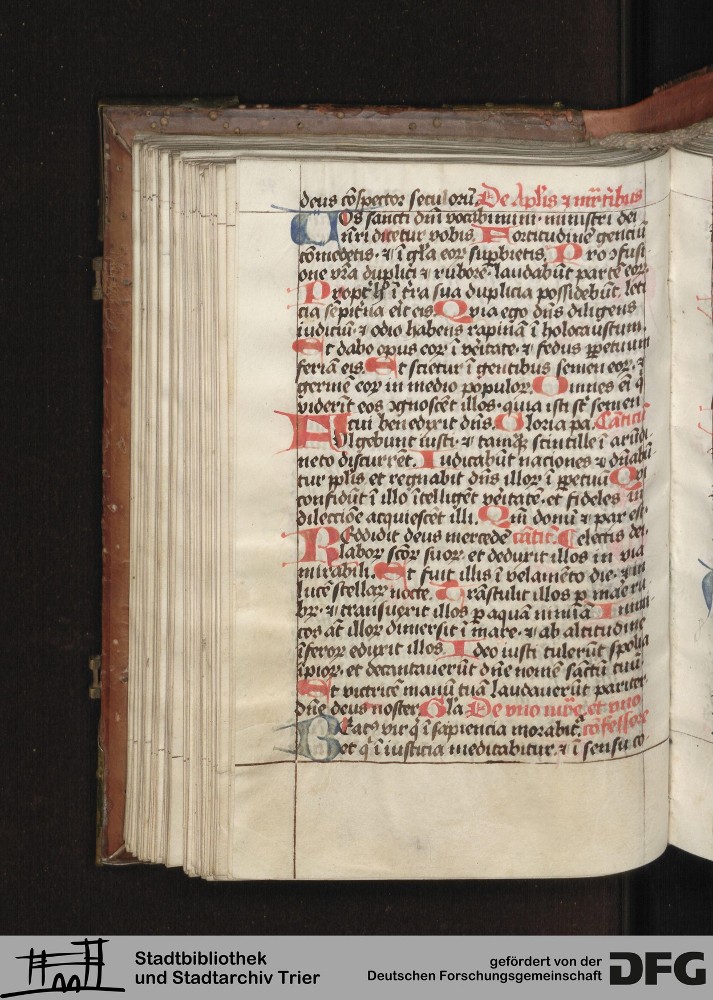 deus cōspector seculorū. De aplīs ⁊ mr̄ribus
Vos sancti dnī vocabimini· ministri dei
nr̄i dicetur vobis. Fortitudinē gentiū
cōmedetis· ⁊ ī gl̄a eoꝝ suꝑbietis. Pro ꝯfusi
one vr̄a duplici ⁊ rubore· laudabūt partē eoꝝ.
Propt͛ h̄ ī t͛ra sua duplicia possidebūt· leti
cia sēpit͛na eit eis. Quia ego dn̄s diligens
iudiciū· ⁊ odio habens rapinā ī holocaustum.
Et dabo opus eoꝝ ī veritate· ⁊ fedus ꝑpetuum
feriā eis. Et scietur ī gentibus semen eoꝝ· ⁊
germē eoꝝ in medio populoꝝ. Omnes ei̅ q̇
viderīt eos ꝯgnoscēt illos· quia isti st̄ semen
cui benedixit dn̄s. Gloria pa. Cāticū
Fulgebunt iusti· ⁊ tamqꝫ scintille ī arūdi
neto discurrēt. Iudicabūt naciones ⁊ dn̄abū
tur pplīs et regnabit dn̄s illoꝝ ī ꝑpetuū. Qui
confidūt ī illo ītelligēt veritatē· et fideles in
dilectione acquiescēt illi. Qm̄ donū ⁊ pax est·
electis dei.
Reddidit deus mercedē cātic̄.
laboꝝ scōꝝ suoꝝ· et deduxit illos in via
mirabili. Et fuit illis ī velamēto die· ⁊ in
lucē stellaꝝ nocte. Trāstulit illos ꝑ mare ru
bꝝ· ⁊ transvexit illos ꝑ aquā nimiā. Inimi
cos aūt illoꝝ dimersit ī mare· ⁊ ab altitudine
īferoꝝ eduxit illos. Ideo iusti tulerūt spolia
īpioꝝ· et decantaverūt dn̄e nomē sāctū tuū.
Et victricē manū tuā laudaverūt pariter·
dn̄e deus noster. Gl̄a De vno mr̄e· et vno
confessore
Beatꝰ vir q̇ ī sapiencia morabit͛·
et q̇ ī iusticia meditabitur· ⁊ ī sensu co
Stadtbibliothek
und Stadtarchiv Trier
gefördert von der
Deutschen Forschungsgemeinschaft
DFG